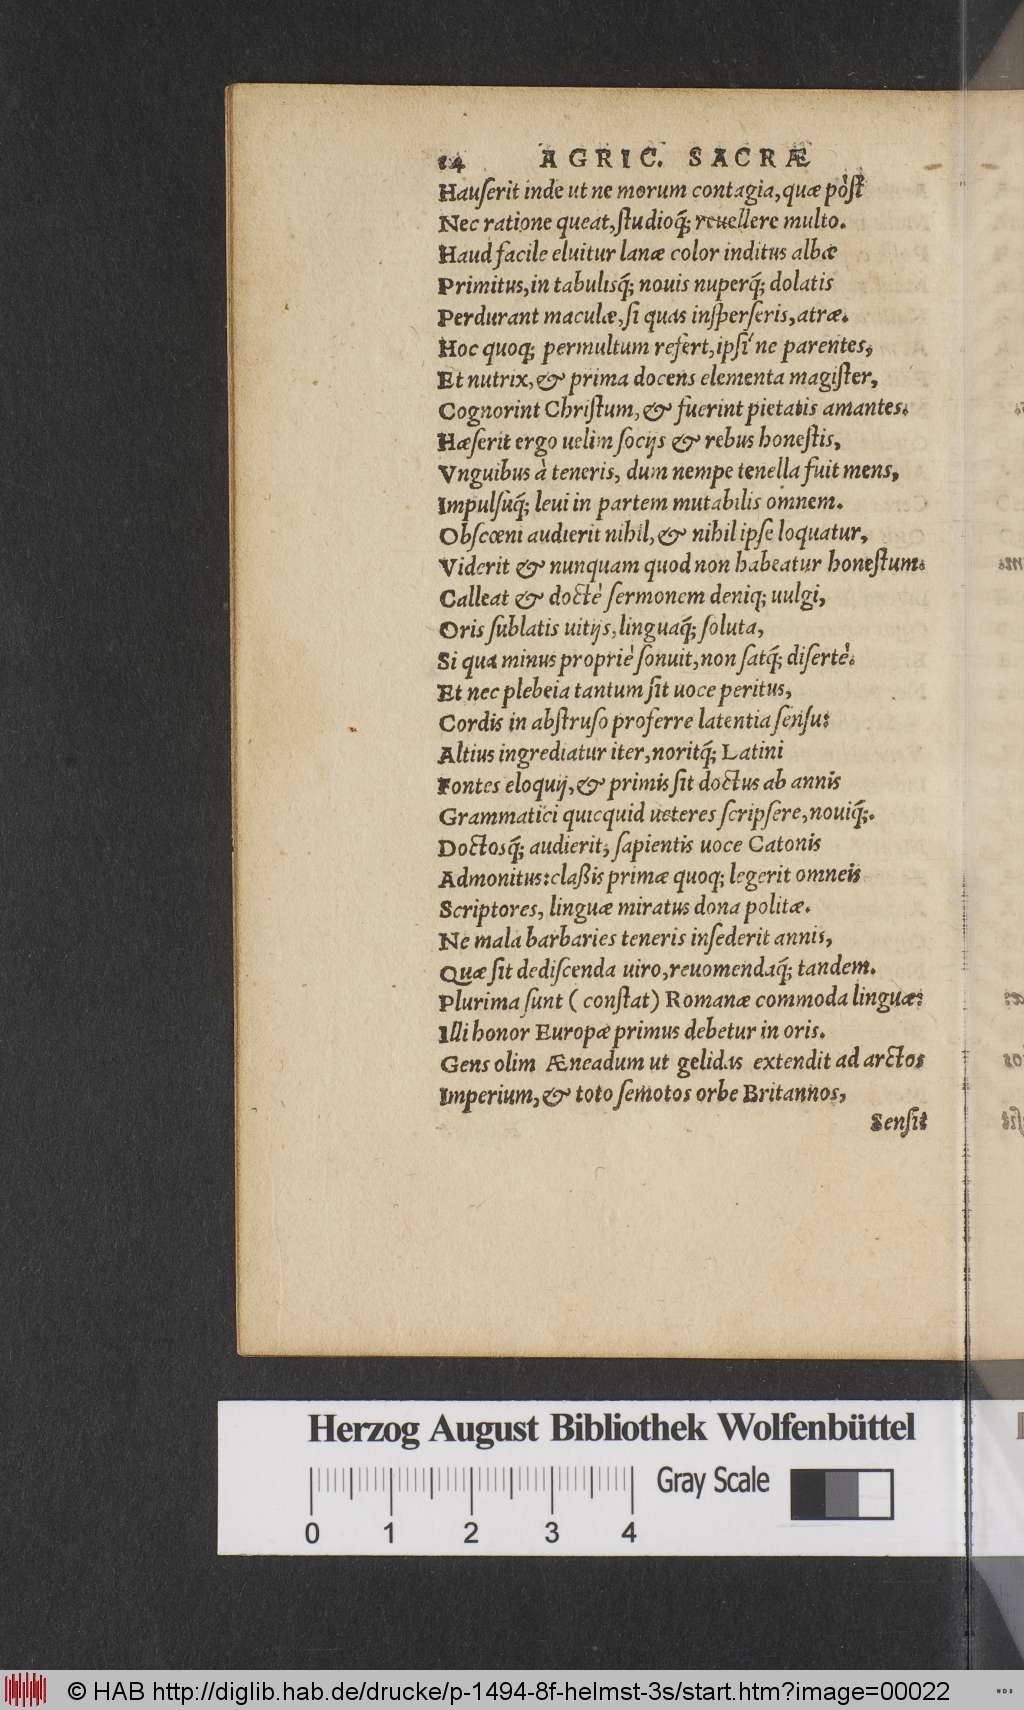 14 AGRIC. SACRÆ
Hauſerit inde ut ne morum contagia, quæ pòſt
Nec ratione queat, ſtudioq́; reuellere multo.
Haud facile eluitur lanæ color inditus albæ
Primitus, in tabulisq́; nouis nuperq́; dolatis
Perdurant maculæ, ſi quas inſperſeris, atræ.
Hoc quoq; permultum refert, ipſi'ne parentes,
Et nutrix, & prima docens elementa magiſter,
Cognorint Chriſtum, & fuerint pietatis amantes.
Hæſerit ergo uelim ſocijs & rebus honeſtis,
Vnguibus à teneris, dum nempe tenella fuit mens,
Impulſuq́; leui in partem mutabilis omnem.
Obſcœni audierit nihil, & nihil ipſe loquatur,
Viderit & nunquam quod non habeatur honeſtum.
Calleat & doctè ſermonem deniq; uulgi,
Oris ſublatis uitijs, linguaq́; ſoluta,
Si qua minus propriè ſonuit, non ſatq́; diſertè.
Et nec plebeia tantum ſit uoce peritus,
Cordis in abſtruſo proferre latentia ſenſu:
Altius ingrediatur iter, noritq́; Latini
Fontes eloquij, & primis ſit doctus ab annis
Grammatici quicquid ueteres ſcripſere, nouiq́;.
Doctosq́; audierit, ſapientis uoce Catonis
Admonitus: claßis primæ quoq; legerit omneis
Scriptores, linguæ miratus dona politæ.
Ne mala barbaries teneris inſederit annis,
Quæ ſit dediſcenda uiro, reuomendaq́; tandem.
Plurima ſunt (conſtat) Romanæ commoda linguæ:
Illi honor Europæ primus debetur in oris.
Gens olim Æneadum ut gelidas extendit ad arctos
Imperium, & toto ſemotos orbe Britannos,
Senſit
Herzog August Bibliothek Wolfenbüttel
Gray Scale
0 1 2 3 4
© HAB http://diglib.hab.de/drucke/p-1494-8f-helmst-3s/start.htm?image=00022